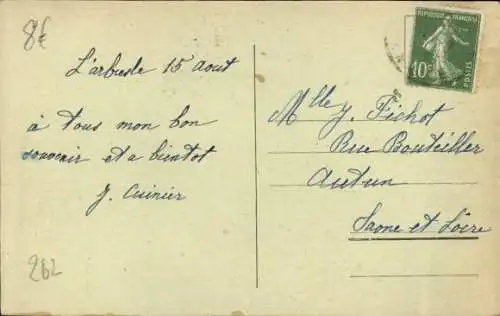 8€
L'arbresle 15 Aout
à tous mon bon
souvenir et a bientot
J. Cuinier
262
REPUBLIQUE FRANÇAISE
10c
POSTES
Mlle J. Fichot
Rue Bouteiller
Autun
Saone et Loire